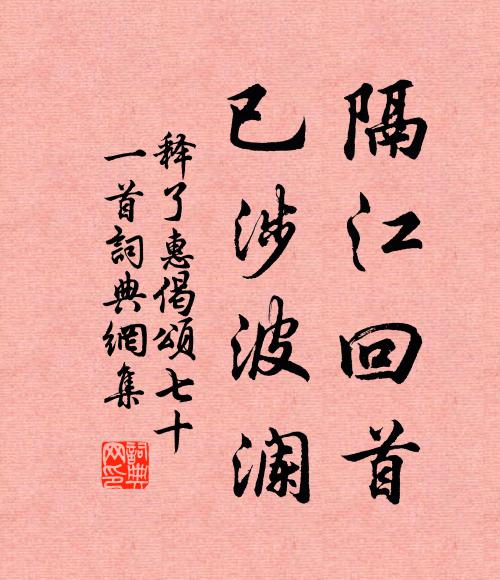 隔江回首
已涉波澜
释了惠偈颂七十
一首詞典網集
詞典
网印